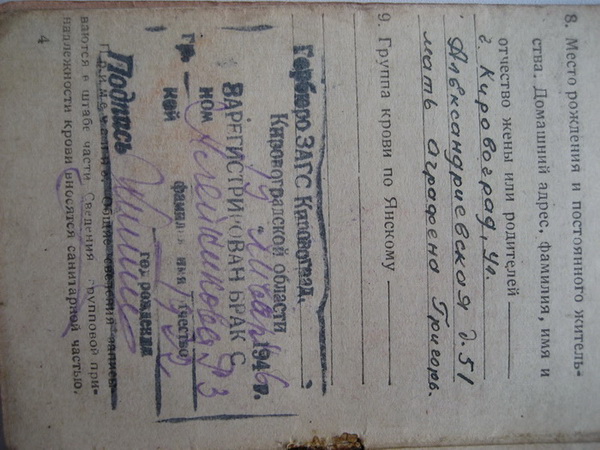 8. Место рождения и постоянного житель-
ства. Домашний адрес, фамилия, имя и
отчество жены или родителей
г. Кировоград, ул.
Александриевская д. 51
мать Аграфена Григорв.
9. Группа крови по Янскому
Горбюро ЗАГС Кировоград.
Кировоградской области
19 194 г.
ЗАРЕГИСТРИРОВАН БРАК С
гр. ном
кой
фамилия имя отчество
год рождения
Подпись
Примечание. Общие сведения записы-
ваются в штабе части. Сведения групповой при-
надлежности крови вносятся санитарной частью.
4